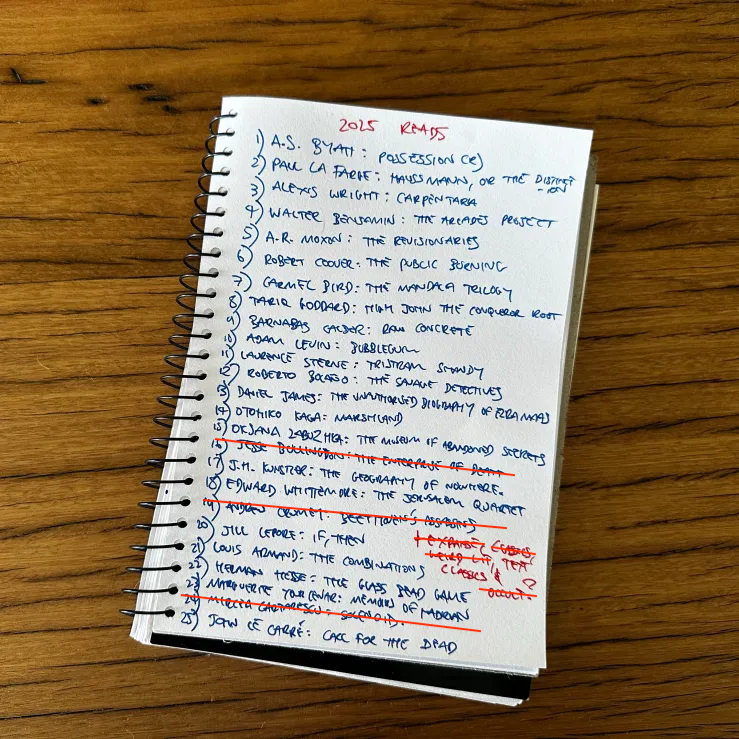 2025 READS
1) A.S. BYATT: POSSESSION (R)
2) PAUL LA FARGE: HAUSSMANN, OR THE DISTINCT
-ION
3) ALEXIS WRIGHT: CARPENTARIA
4) WALTER BENJAMIN: THE ARCADES PROJECT
5) A.R. MOXON: THE REVISIONARIES
6) ROBERT COOVER: THE PUBLIC BURNING
7) CARMEL BIRD: THE MANDALA TRILOGY
8) TARIQ GODDARD: HIGH JOHN THE CONQUEROR ROOT
9) BARNABAS CALDER: RAW CONCRETE
10) ADAM LEVIN: BUBBLEGUM
11) LAURENCE STERNE: TRISTRAM SHANDY
12) ROBERTO BOLAÑO: THE SAVAGE DETECTIVES
13) DANIEL JAMES: THE UNAUTHORISED BIOGRAPHY OF EZRA MAAS
14) OTOHIKO KAGA: MARSHLAND
15) OKSANA ZABUZHKO: THE MUSEUM OF ABANDONED SECRETS
16) JESSE BULLINGTON: THE ENTERPRISE OF DEATH
17) J.H. KUNSTLER: THE GEOGRAPHY OF NOWHERE.
18) EDWARD WHITTEMORE: THE JERUSALEM QUARTET
19) ANDREW CRUMEY: BEETHOVEN'S ASSASSINS
20) JILL LEPORE: IF, THEN
21) LOUIS ARMAND: THE COMBINATIONS
22) HERMAN HESSE: THE GLASS BEAD GAME
23) MARGUERITE YOURCENAR: MEMOIRS OF HADRIAN
24) MIRCEA CARTARESCU: SOLENOID.
25) JOHN LE CARRÉ: CALL FOR THE DEAD
+ EXPANSE,
WEIRD LIT,
CLASSICS &
OCCULT.
?